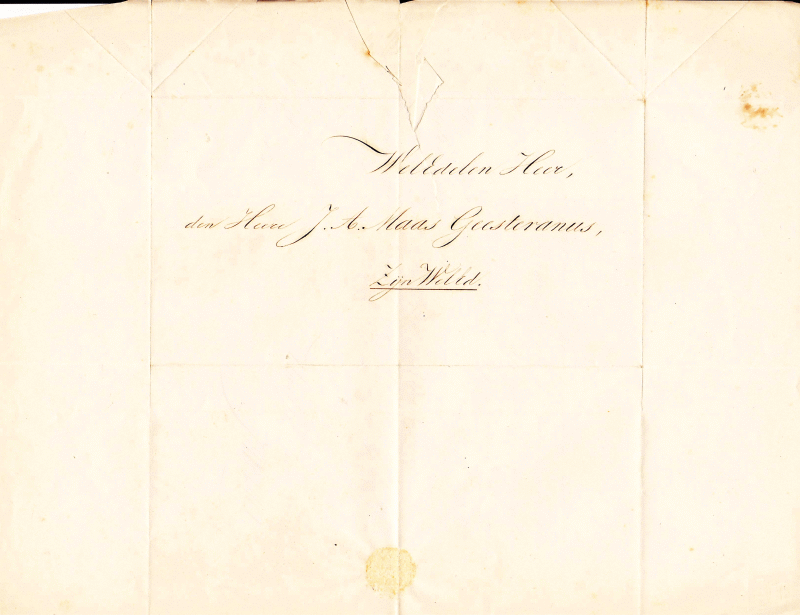 WelEdelen Heer,
den Heere J. A. Maas Geesteranus,
Zijn WelEd.